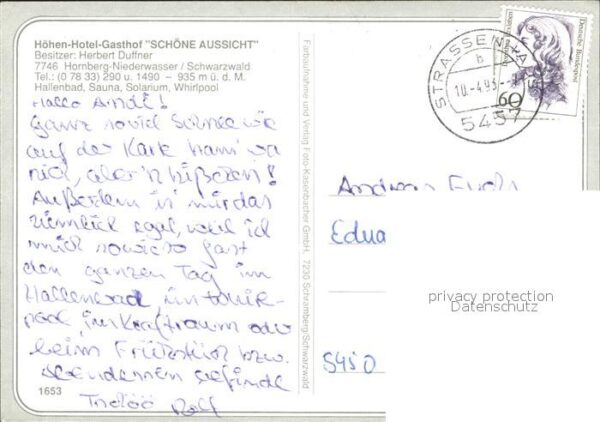 Höhen-Hotel-Gasthof "SCHÖNE AUSSICHT"
Besitzer: Herbert Duffner
7746 Hornberg-Niederwasser / Schwarzwald
Tel.: (0 78 33) 290 u. 1490 – 935 m ü. d. M.
Hallenbad, Sauna, Solarium, Whirlpool
Hallo Andi!
Ganz soviel Schnee wie
auf der Karte ham' wa
nich, aber'n bißchen!
Außerdem is' mir das
ziemlich egal, weil ich
mich sowieso fast
den ganzen Tag im
Hallenbad, im
pool, im Kraftraum oder
beim Frühstück bzw.
Abendessen befinde
Rolf
1653
Farbaufnahme und Verlag Foto-Kasenbacher GmbH, 7230 Schramberg/Schwarzwald
STRASSENHA
b
10.-4.93
5457
60
Deutsche Bundespost
Andreas Fuchs
Edua
5450
privacy protection
Datenschutz